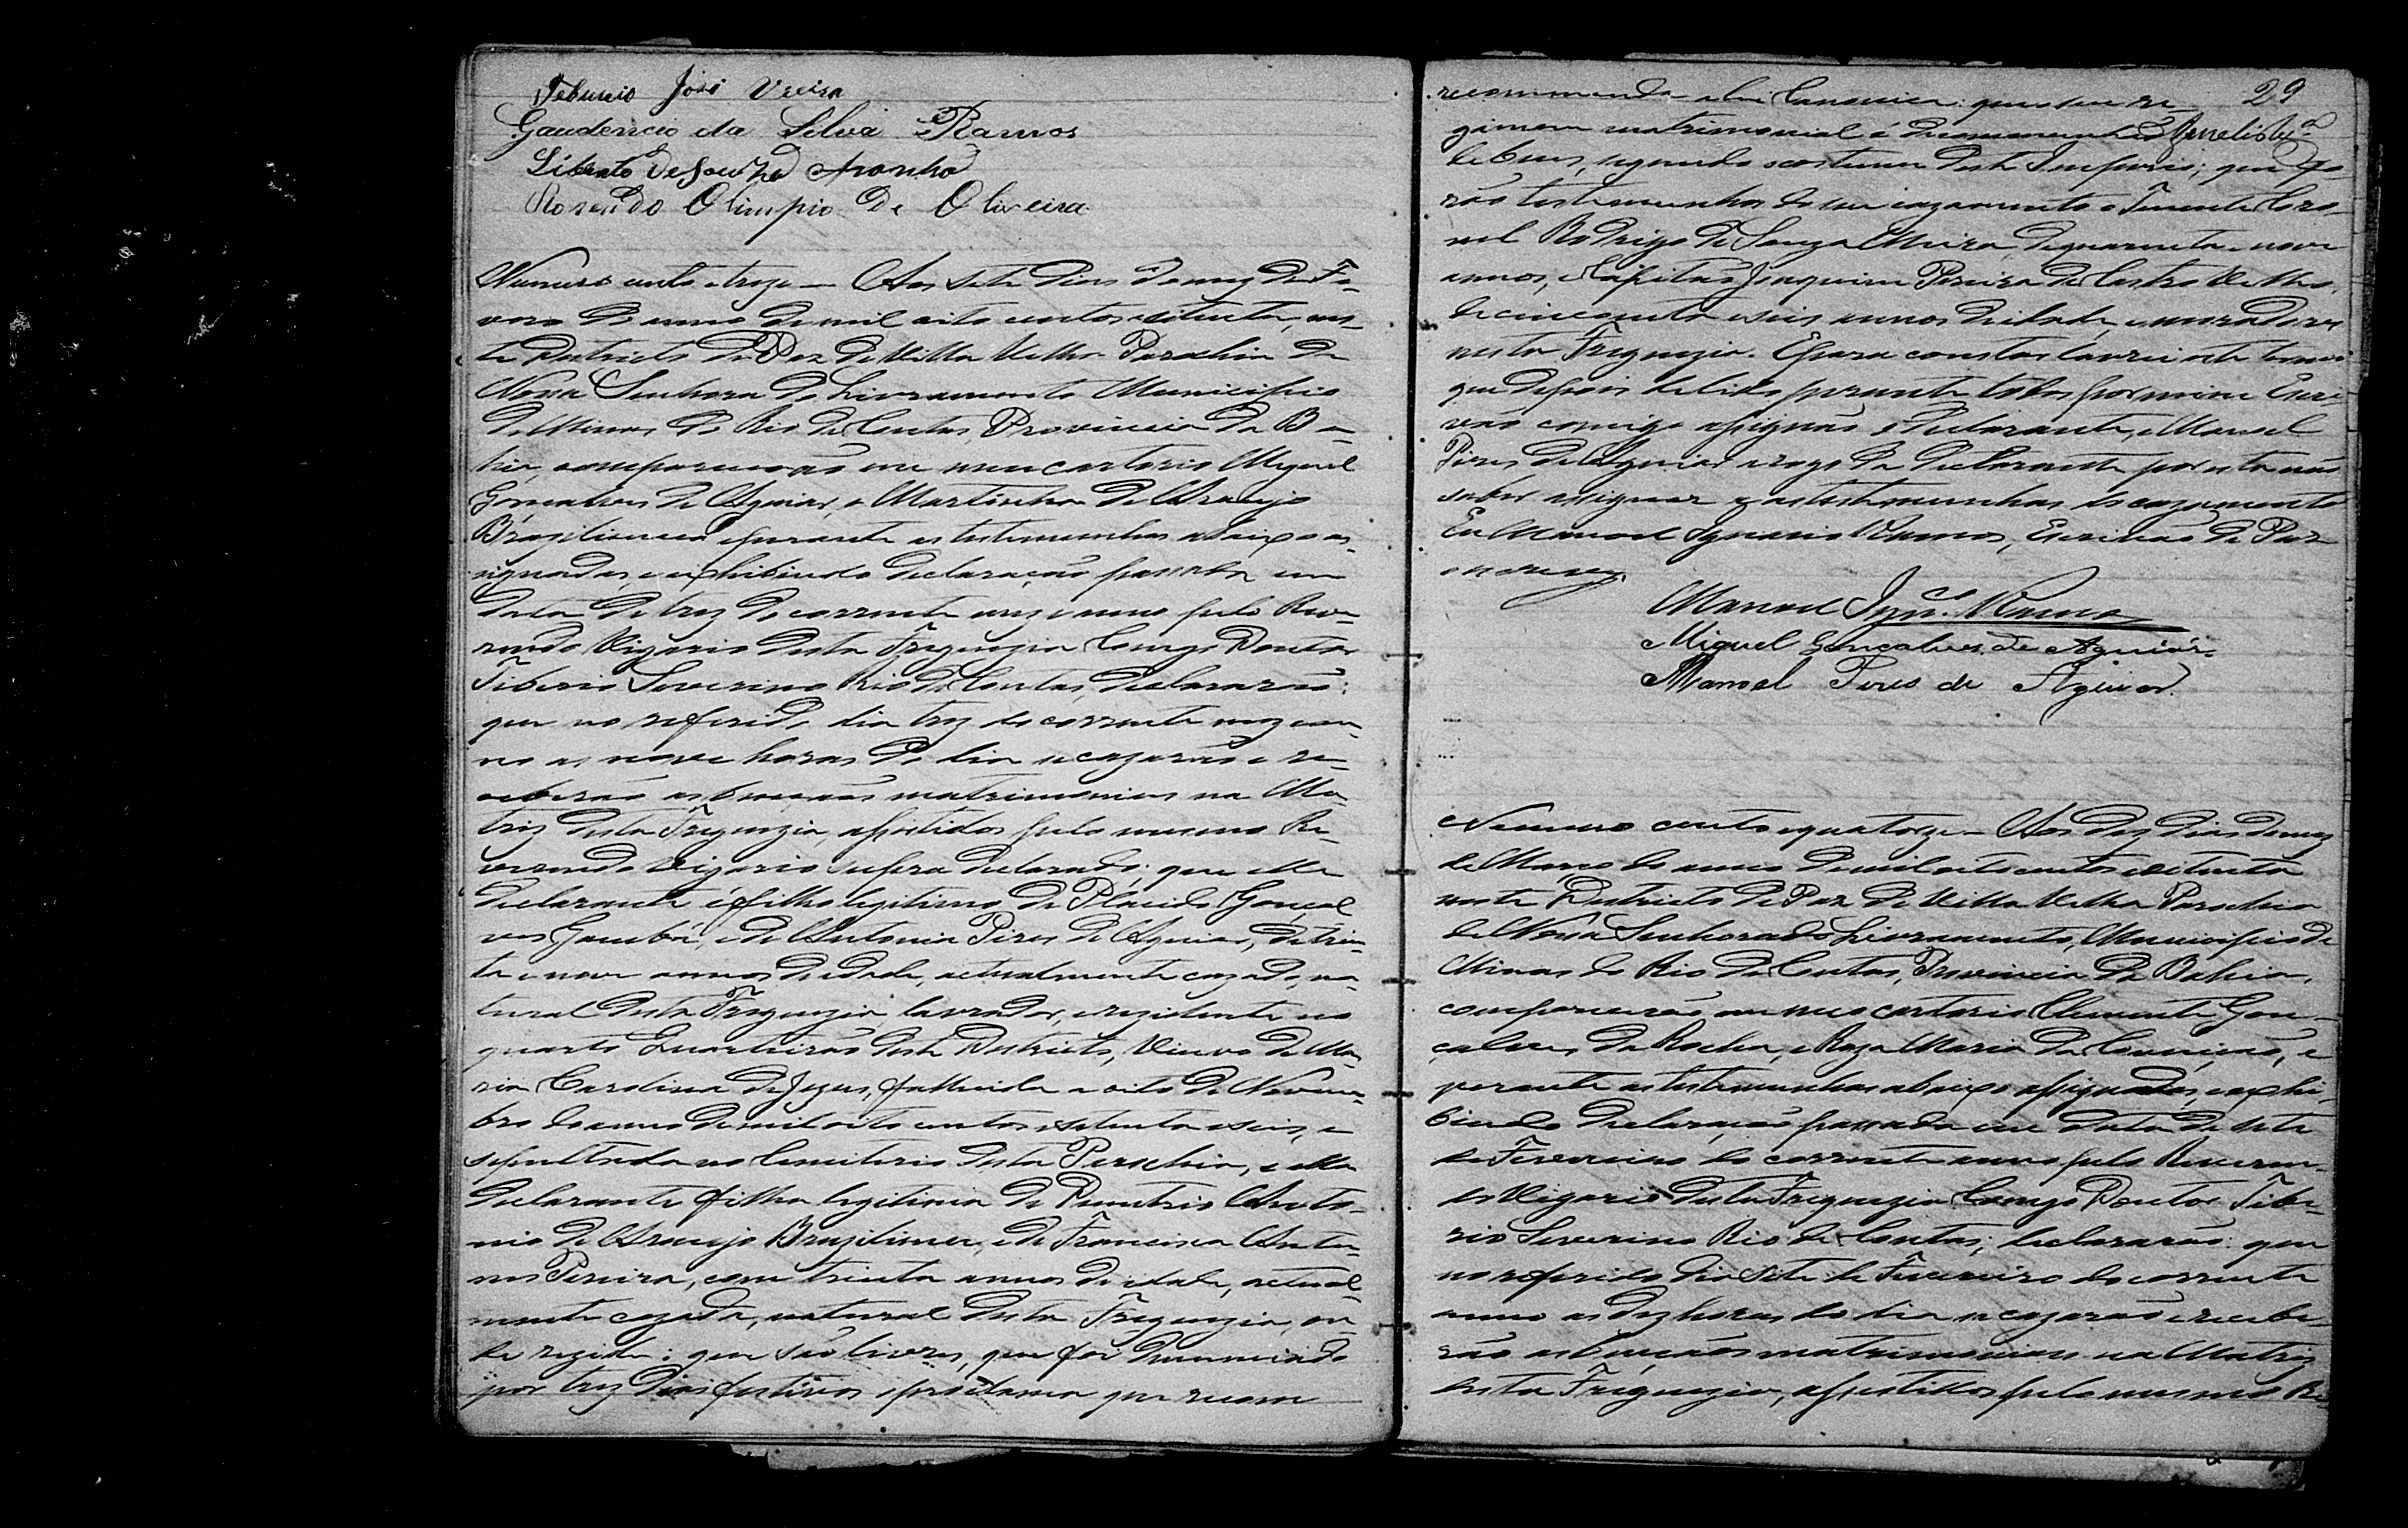 Teburcio José Vieira
Gaudencio da Silva Ramos
Liberato de Souza Aranha
Rosendo Olimpio de Oliveira
Numero cento e treze — Aos sete dias do mez de Fe-
vero do anno de mil oito centos e oitenta, nes-
te Districto da Paz de Villa Velha Parochia de
Nossa Senhora do Livramento Municipio
de Minas do Rio de Contas, Provincia da Ba-
hia, comparecerão em meu cartorio Miguel
Gonçalves de Aguiar, e Martinha de Araujo
Brazilience e perante as testemunhas abaixo as-
signadas, e exhibindo declaração passada em
data de trez do corrente mez e anno pelo Reve-
rendo Vigario desta Freguezia Conego Doutor
Tiberio Severino Rio de Contas, declararão:
que no referido dia trez do corrente mez e an-
no as nove horas do dia se cazarão e re-
ceberão as bençãos matrimoniaes na Ma-
triz desta Freguezia, assistidos pelo mesmo Re-
verendo Vigario supra declarado; que elle
declarante é filho legitimo de Placido Gonçal
ves Gambá, e de Antonia Pires de Aguiar, de trin-
ta e nove annos de idade, actualmente cazado, na-
tural desta Freguezia, lavrador, e rezidente no
quarto Quarteirão deste Districto, Viuvo de Ma-
ria Carolina de Jezus, fallecida a oito de Novem-
bro do anno de mil oito centos e setenta e seis, e
sepultada no Cemiterio desta Parochia, e ella
declarante filha legitima de Demetrio Anto-
nio de Araujo Brazilience, e de Francisca Antu-
nes Pereira, com trinta annos de idade, actual-
mente cazada, natural desta Freguezia, on-
de rezide: que são livres, que foi denunciado
por trez dias festivos o proclama que recom
29
recommenda a lei Canonica: que seu re-
gimem matrimonial é de communhão
de bens, segundo o costume deste Imperio; que fo-
rão testemunhas do seu cazamento o Tenente Coro-
nel Rodrigo de Souza Meira, de quarenta e nove
annos, e Capitão Joaquim Pereira de Castro
de cincoenta e seis annos de idade, e moradores
nesta Freguezia. E para constar lavrei este termo
que depois de lido perante todos por mim Escri
vão comigo assignão o declarante, e Manoel
Pires de Aguiar a rogo da declarante por esta não
saber assignar e as testemunhas do cazamento
Eu Manoel Ignacio Ramos, Escrivão de Paz
o escrevy.
Manoel Ignco. Ramos
Miguel Gonçalves de Aguiár
Manoel Pires de Aguiar.
Numero cento e quatorze — Aos dez dias do mez
de Março do anno de mil oito centos e oitenta
neste Districto de Paz de Villa Velha Parochia
de Nossa Senhora do Livramento, Municipio de
Minas do Rio de Contas, Provincia da Bahia,
comparecerão em meu cartorio Clemente Gon-
çalves da Rocha, e Roza Maria da Conceição, e
perante as testemunhas abaixo assignadas, e exhi-
bindo declaração passada em data de sete
de Fevereiro do corrente anno pelo Reveren-
do Vigario desta Freguezia Conego Doutor Tibe-
rio Severino Rio de Contas; declararão: que
no referido dia sete de Fevereiro do corrente
anno as dez horas do dia se cazarão e recebe-
rão as bençãos matrimoniaes na Matriz
desta Freguezia, assistidos pelo mesmo Re-